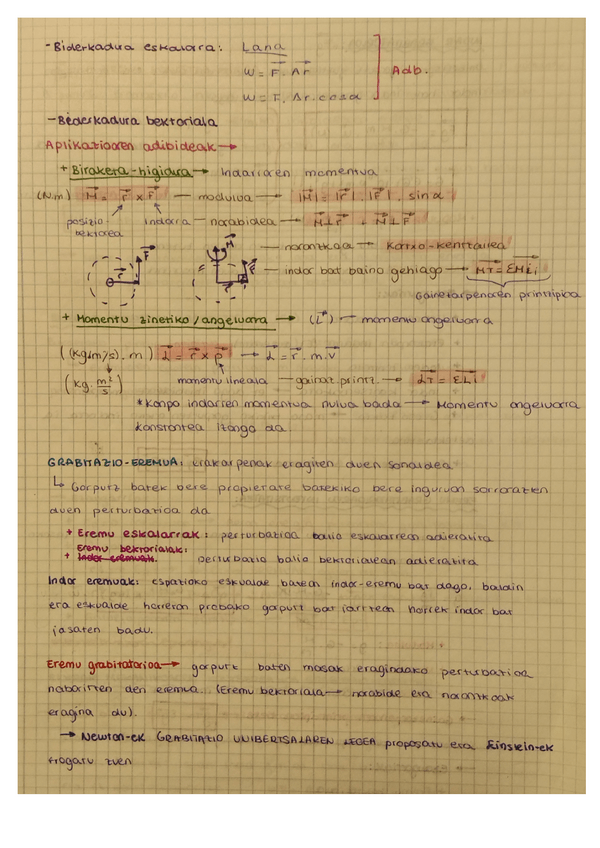 - Biderkadura eskalarra: Lana
W = F⃗ . Δr⃗
Adb.
W = F. Δr. cosα
- Biderkadura bektoriala
Aplikazioaren adibideak →
+ Biraketa-higidura → Indarraren momentua
(N.m) M⃗ = r⃗ x F⃗ — modulua → |M⃗| = |r⃗| . |F⃗| . sin α
posizio-bektorea
indarra — norabidea → M⃗ ⊥ r⃗ + M⃗ ⊥ F⃗
— noranzkoa → Kortxo-kentzailea
— indar bat baino gehiago → M⃗T = ΣM⃗i
Gainezarpenaren printzipioa
+ Momentu zinetiko/angeluarra → (L⃗) — momentu angeluarra
((kgm/s) . m) L⃗ = r⃗ x p⃗ → L⃗ = r⃗ . m. v⃗
(kg. m²/s) momentu lineala — gainez. printz. → L⃗T = ΣL⃗i
* Kanpo indarren momentua nulua bada → Momentu angeluarra
konstantea izango da
GRABITAZIO-EREMUA: erakarpenak eragiten duen sonaldea
↳ Gorputz batek bere propietate batekiko bere inguruan sorrarazten
duen perturbazioa da
+ Eremu eskalarrak: perturbazioa balio eskalarrean adierazita
+ Eremu bektorialak: perturbazia balio bektorialean adierazita
Indar eremuak: espazioko eskualde batean indar-eremu bat dago, baldin
eta eskualde horretan probako gorputz bat jartzean horrek indar bat
jasaten badu.
Eremu grabitatorioa → gorputz baten masak eragindako perturbazioa
nabaritzen den eremua. (Eremu bektoriala → norabide eta noranzkoak
eragina du).
→ Newton-ek GRABITAZIO UNIBERTSALAREN LEGEA proposatu eta Einstein-ek
frogatu zuen